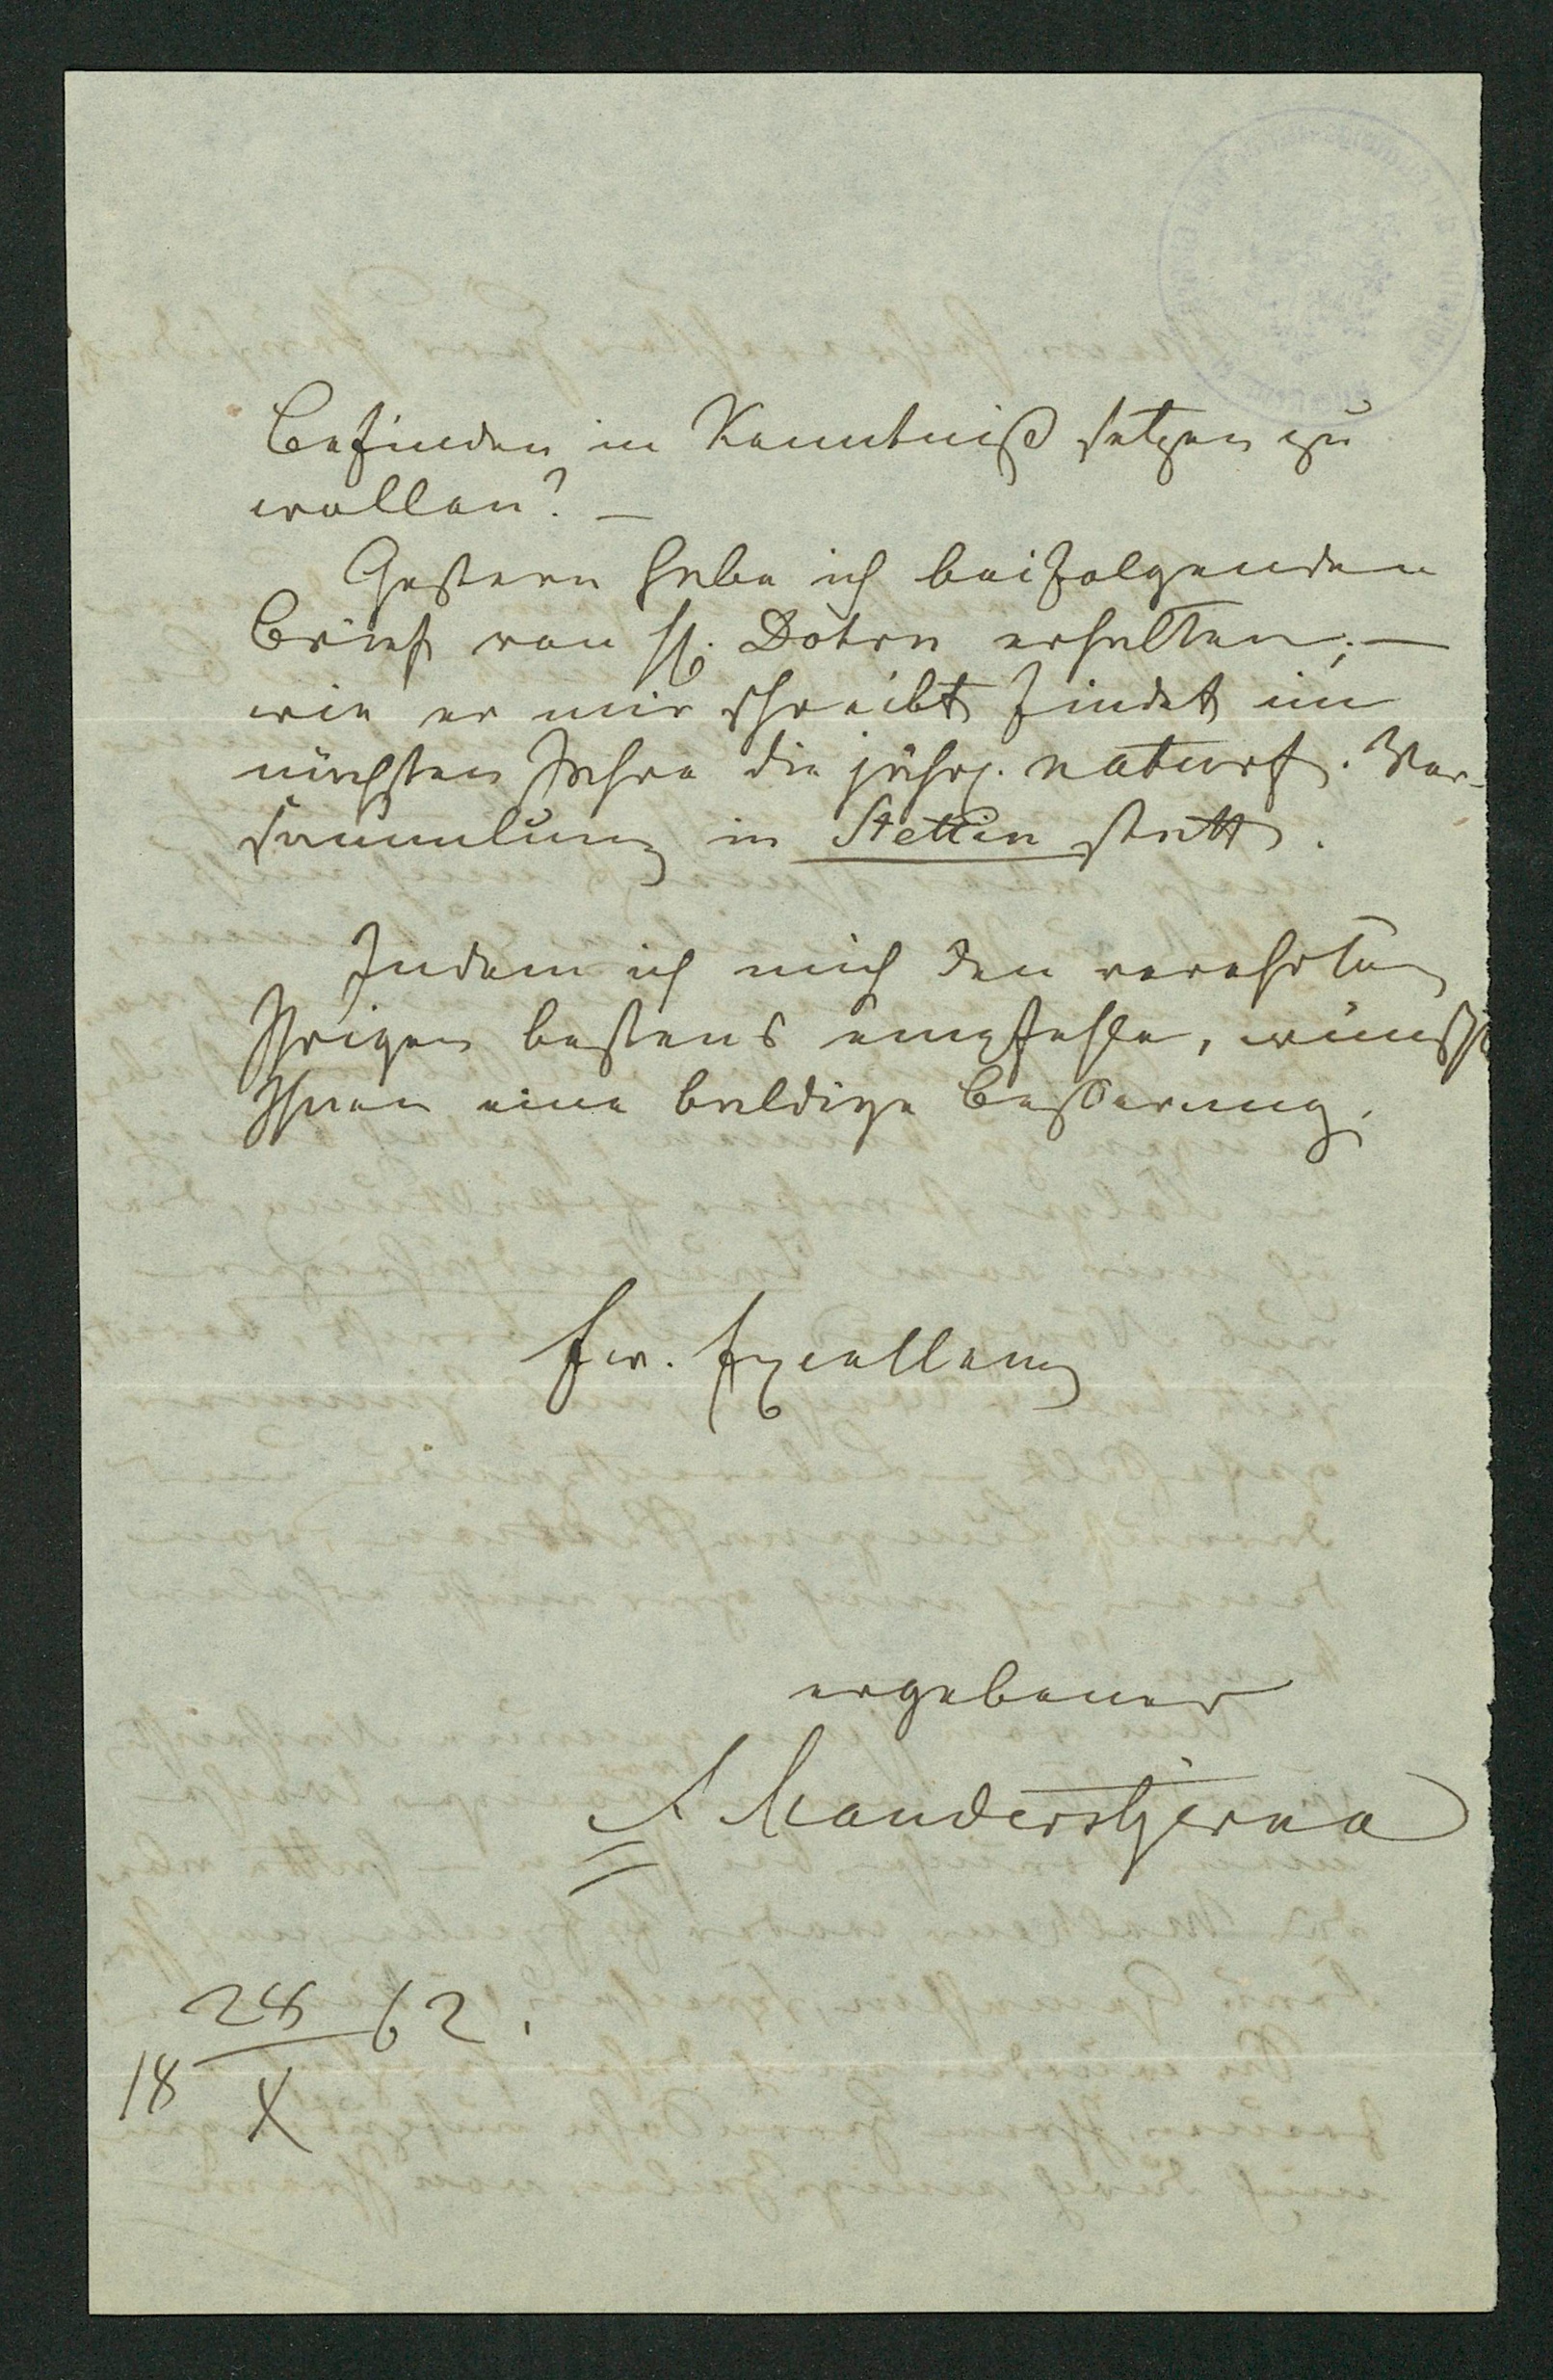 Befinden in Kenntniß setzen zu
wollen? —
Gestern habe ich beifolgenden
Brief von H. Dohrn erhalten; —
wie er mir schreibt findet im
nächsten Jahre die jährl. naturf. Ver-
sammlung in Stettin statt.
Indem ich mich den verehrten
Ihrigen bestens empfehle, wünsche
Ihnen eine baldige Besserung.
Ew. Excellenz
ergebener
A Manderstjerna
18 28/X 62.